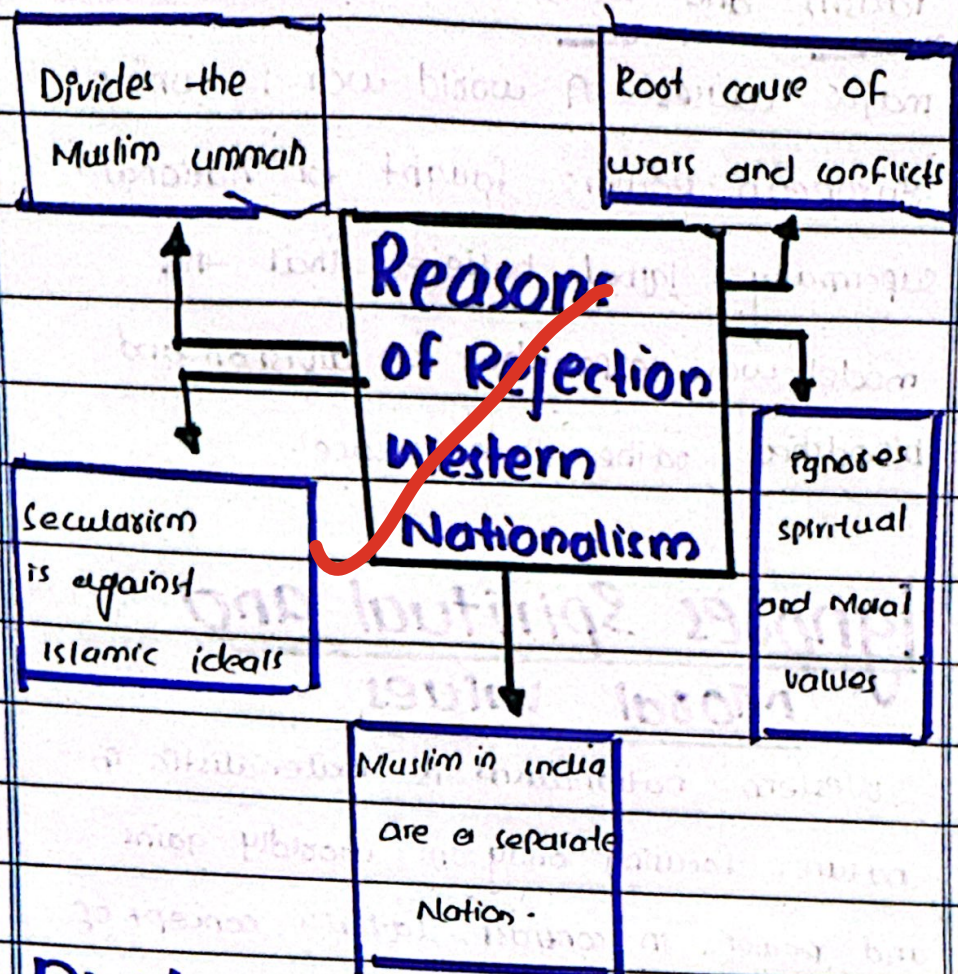 Divides the
Muslim ummah
Root cause of
wars and conflicts
Reasons
of Rejection
Western
Nationalism
Secularism
is against
Islamic ideals
Ignores
spiritual
and Moral
values
Muslim in india
are a separate
Nation.